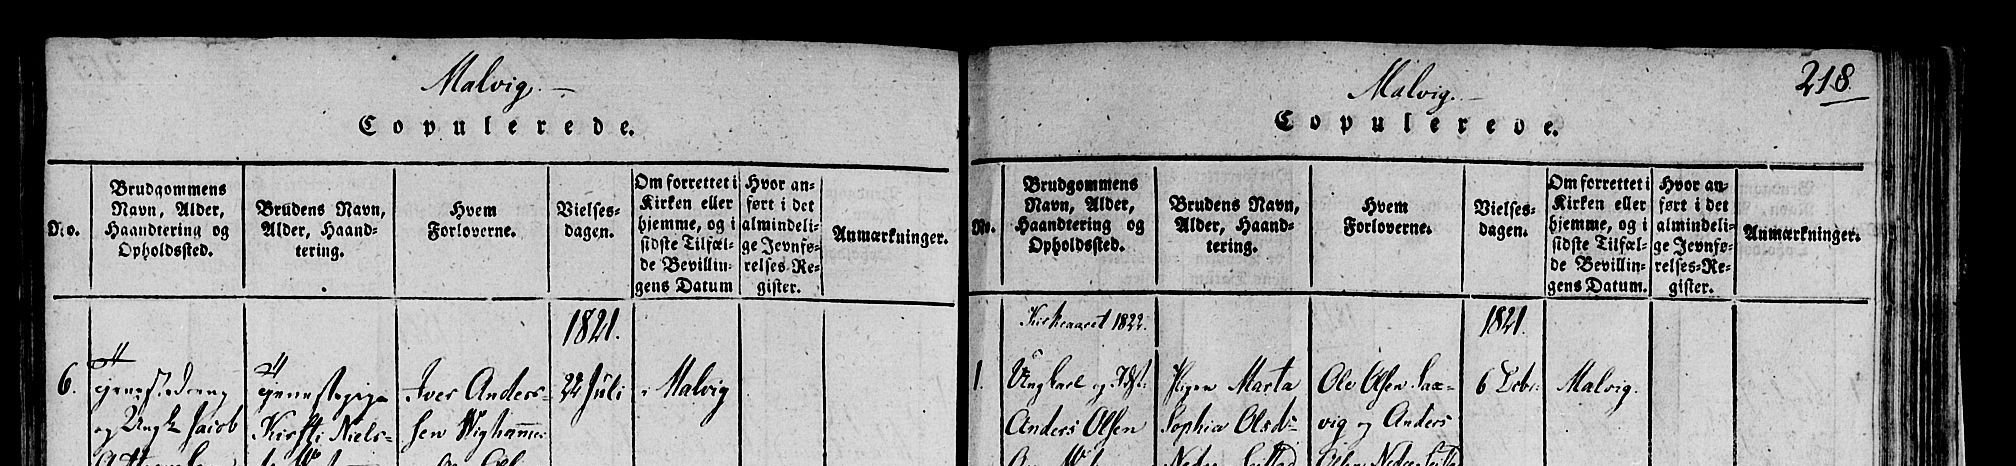 Malvig.
Copulerede.
No.
Brudgommens
Navn, Alder,
Haandtering og
Opholdssted.
Brudens Navn,
Alder, Haand-
tering.
Hvem
Forloverne.
Vielses-
dagen.
Om forrettet i
Kirken eller
hjemme, og i
sidste Tilfæl-
de Bevillin-
gens Datum
Hvor an-
ført i det
almindeli-
ge Jevnfø-
relses-Re-
gister.
Anmærkninger.
1821.
6.
og Ungk Jacob
Kirsti Niels-
Iver Anders-
sen
22 Juli
i Malvig
218
Malvig.
Copulerede.
No.
Brudgommens
Navn, Alder,
Haandtering og
Opholdssted.
Brudens Navn,
Alder, Haand-
tering.
Hvem
Forloverne.
Vielses-
dagen.
Om forrettet i
Kirken eller
hjemme, og i
sidste Tilfæl-
de Bevillin-
gens Datum.
Hvor an-
ført i det
almindeli-
ge Jevnfø-
relses-Re-
gister.
Anmærkninger.
Kirkeaaret 1822.
1821.
1.
Ungkarl og
Anders Olsen
Pigen Marta
Sophia Olsd:
Ole Olsen Sax-
vig og Anders
6 Decbr:
Malvig.